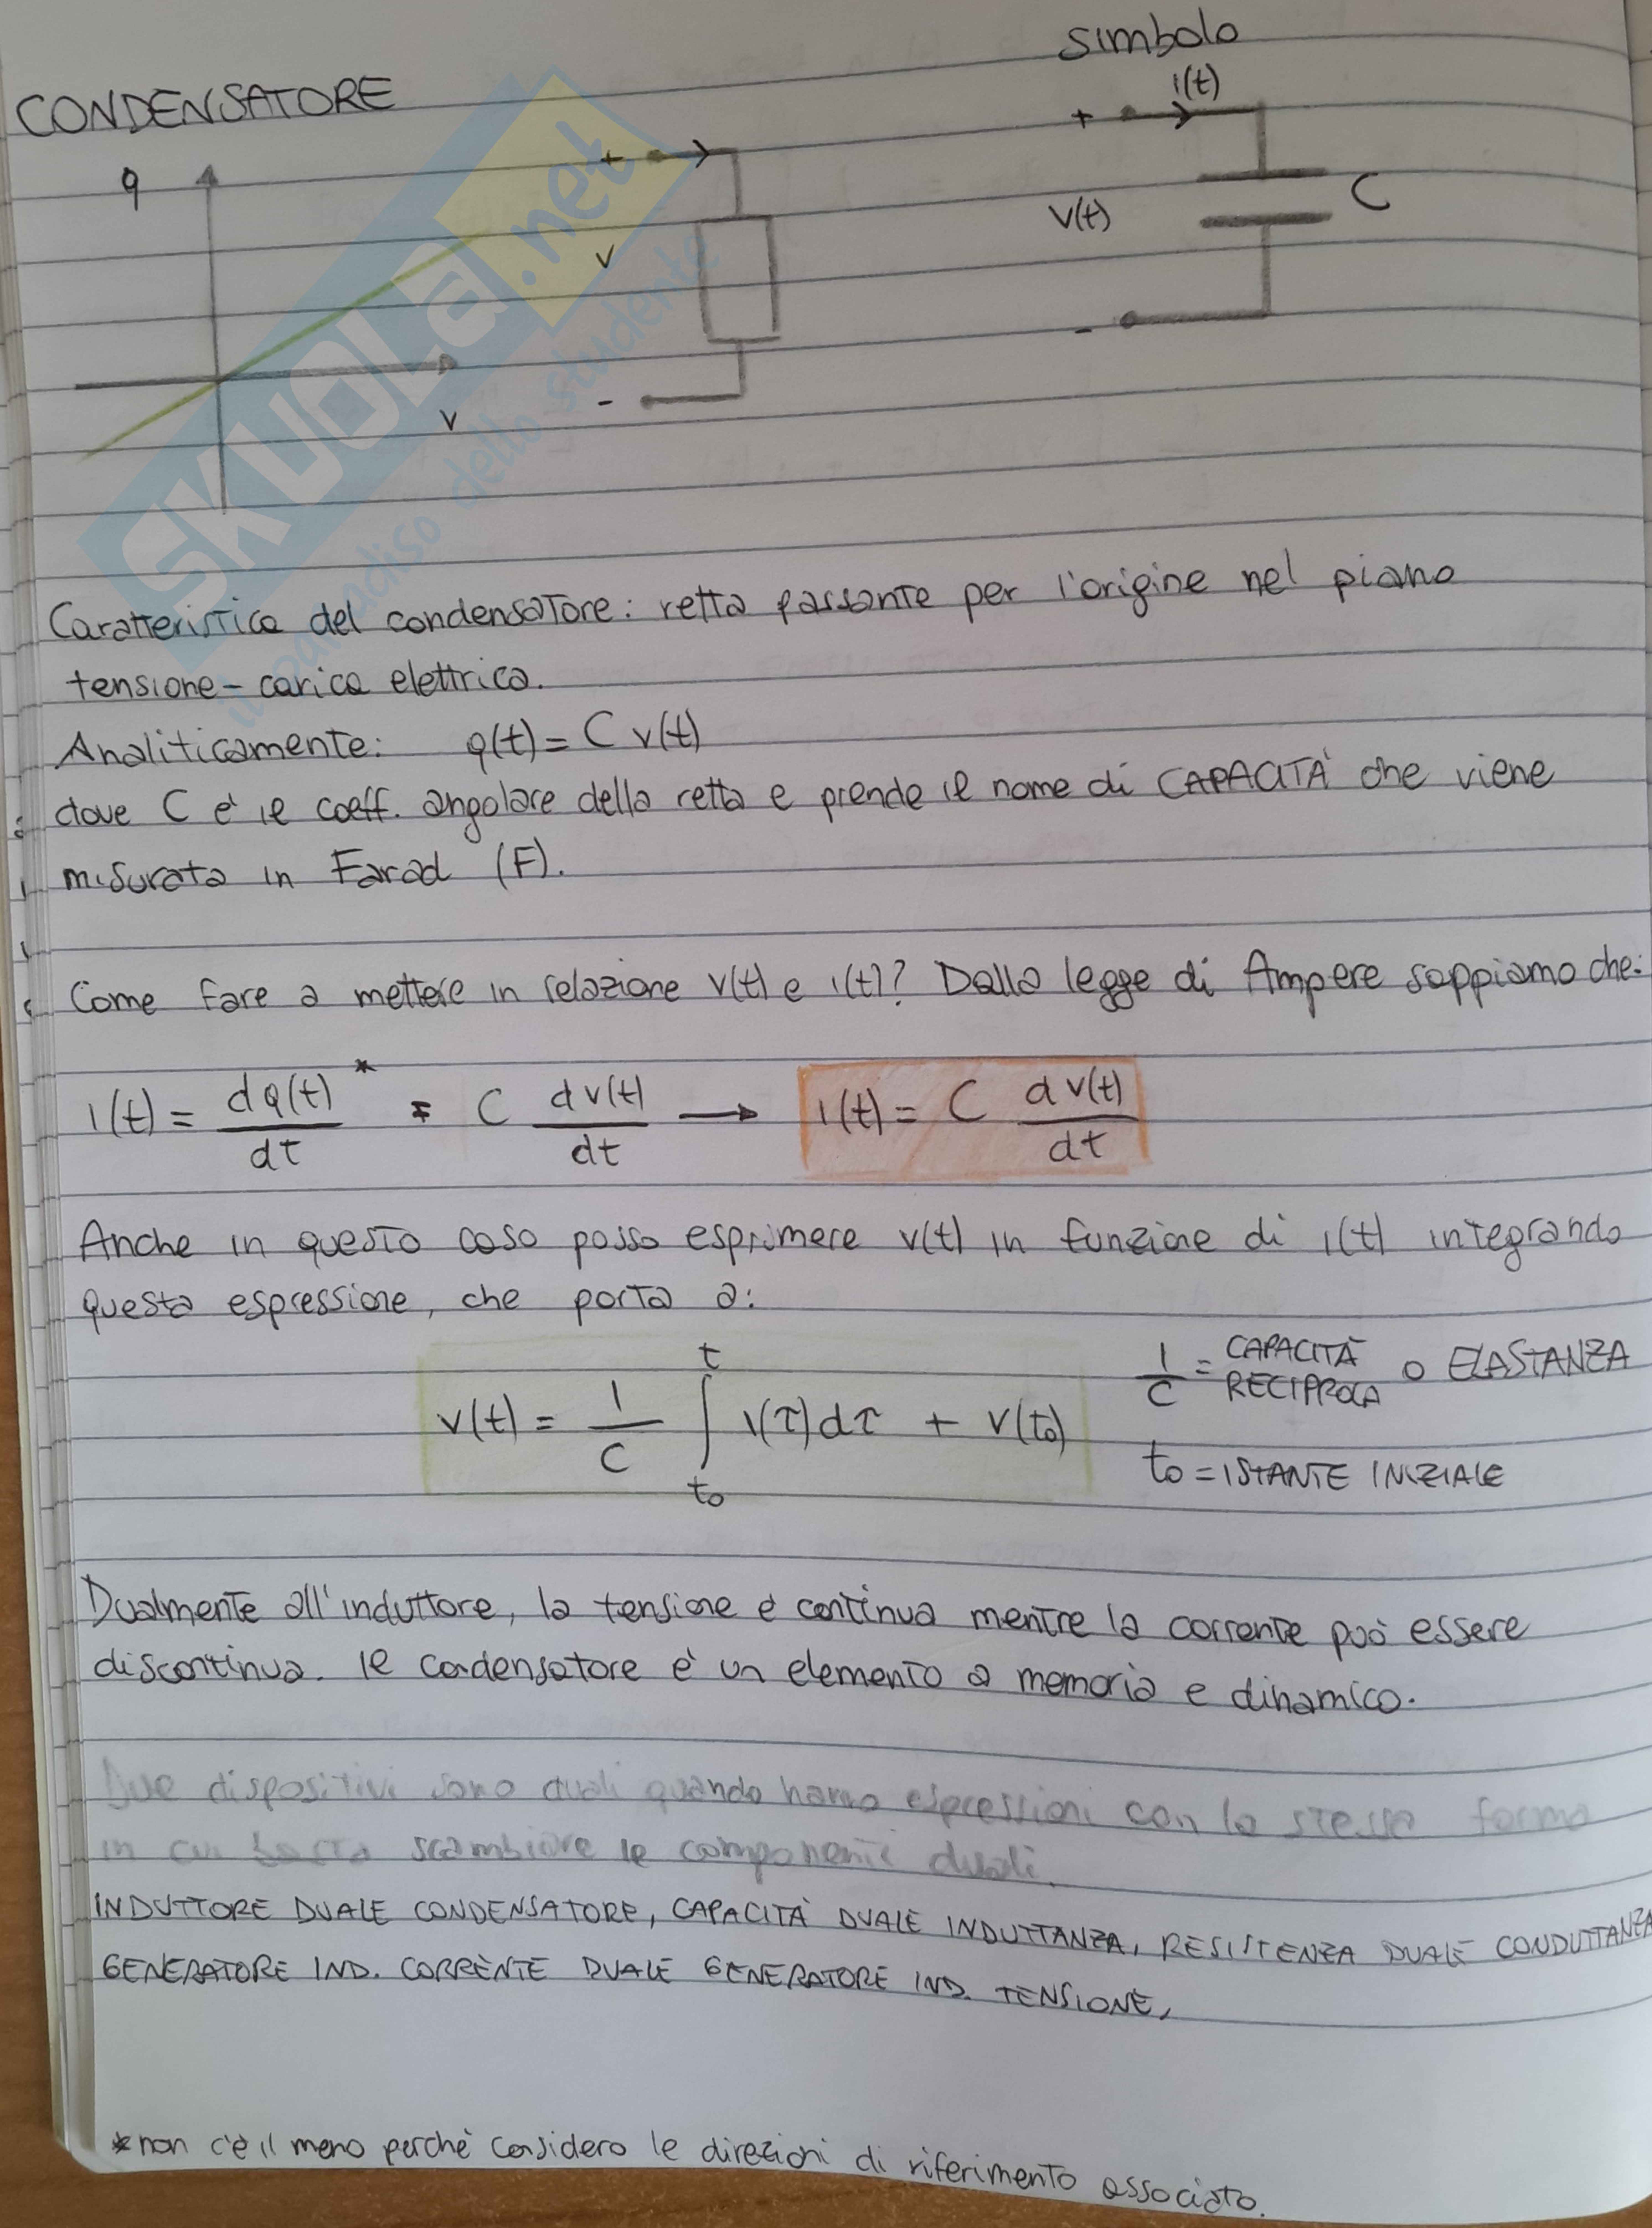 simbolo
CONDENSATORE
i(t)
+
+
q
C
v(t)
v
-
-
v
SKUOLa.net
il paradiso dello studente
Caratteristica del condensatore: retta passante per l'origine nel piano
tensione - carica elettrica.
Analiticamente: q(t) = C v(t)
dove C è il coeff. angolare della retta e prende il nome di CAPACITÀ che viene
misurata in Farad (F).
Come fare a mettere in relazione v(t) e i(t)? Dalla legge di Ampere sappiamo che:
i(t) = dq(t)/dt * = C dv(t)/dt → i(t) = C dv(t)/dt
Anche in questo caso posso esprimere v(t) in funzione di i(t) integrando
questa espressione, che porta a:
v(t) = 1/C ∫ t t0 i(τ)dτ + v(t0)
1/C = CAPACITÀ RECIPROCA O ELASTANZA
t0 = ISTANTE INIZIALE
Dualmente all'induttore, la tensione è continua mentre la corrente può essere
discontinua. Il condensatore è un elemento a memoria e dinamico.
Due dispositivi sono duali quando hanno espressioni con la stessa forma
in cui basta scambiare le componenti duali.
INDUTTORE DUALE CONDENSATORE, CAPACITÀ DUALE INDUTTANZA, RESISTENZA DUALE CONDUTTANZA
GENERATORE IND. CORRENTE DUALE GENERATORE IND. TENSIONE,
*non c'è il meno perchè considero le direzioni di riferimento associato.